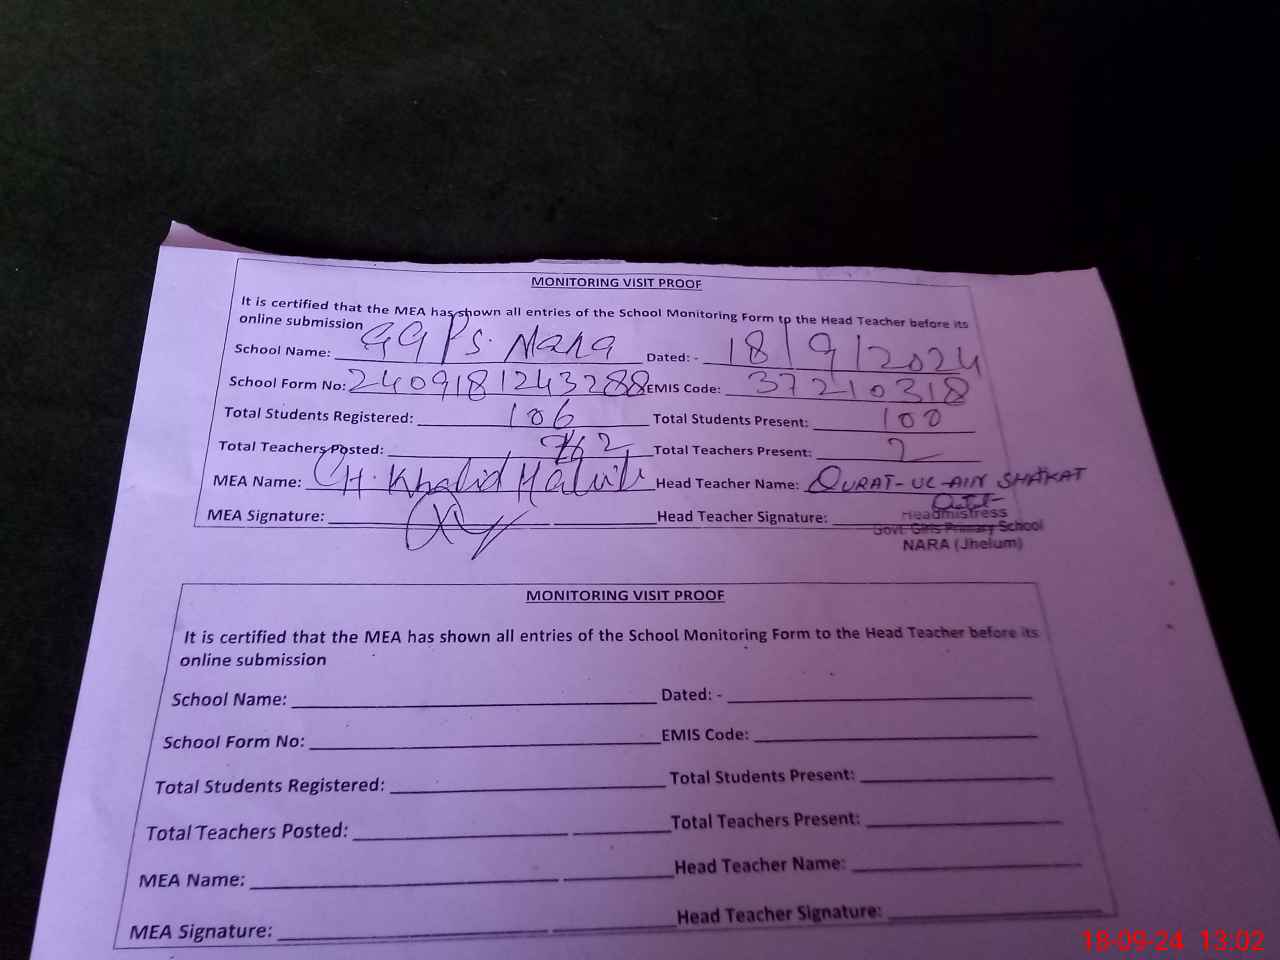 MONITORING VISIT PROOF
It is certified that the MEA has shown all entries of the School Monitoring Form to the Head Teacher before its
online submission
School Name: GGPS. Nara Dated: - 18/9/2024
School Form No: 2409181243288 EMIS Code: 37210318
Total Students Registered: 106 Total Students Present: 100
Total Teachers Posted: 2 Total Teachers Present: 2
MEA Name: CH. Khalid Head Teacher Name: QURAT-UL-AIN SHAKAT
MEA Signature: Head Teacher Signature:
Headmistress
Govt. Girls Primary School
NARA (Jhelum)
MONITORING VISIT PROOF
It is certified that the MEA has shown all entries of the School Monitoring Form to the Head Teacher before its
online submission
School Name: Dated: -
School Form No: EMIS Code:
Total Students Registered: Total Students Present:
Total Teachers Posted: Total Teachers Present:
MEA Name: Head Teacher Name:
MEA Signature: Head Teacher Signature:
18-09-24 13:02